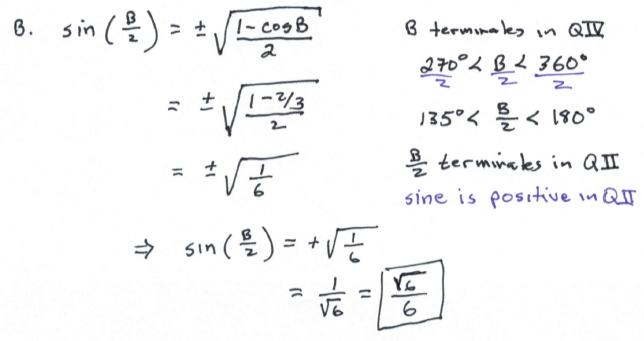 B. sin(B/2) = ± √((1-cosB)/2)
B terminates in QIV
270°/2 < B/2 < 360°/2
= ± √((1-2/3)/2)
135° < B/2 < 180°
= ± √(1/6)
B/2 terminates in QII
sine is positive in QII
⇒ sin(B/2) = +√(1/6)
= 1/√6 = √6/6